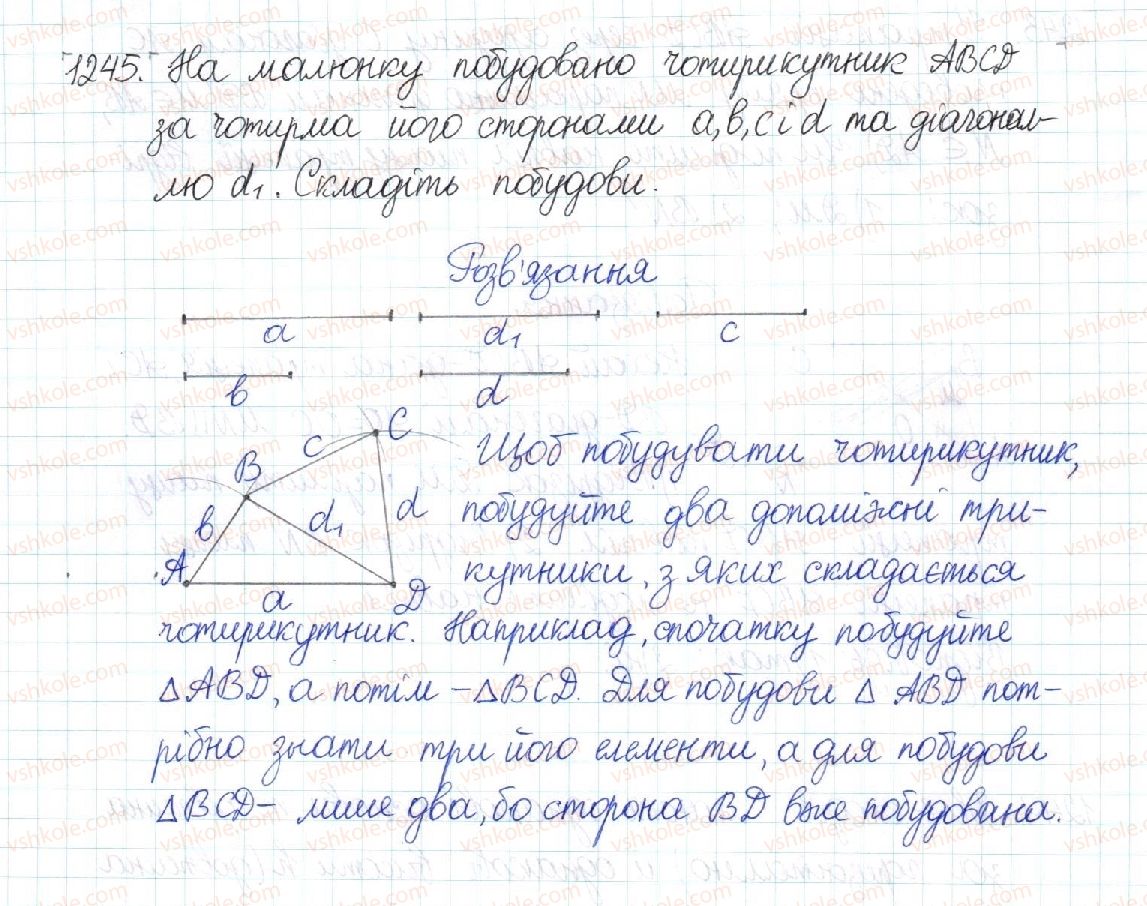 1245. На малюнку побудовано чотирикутник ABCD
за чотирма його сторонами a, b, c і d та діагонал-
лю d₁. Складіть побудови.
Розв'язання
a d₁ c
b d
C
c
B
b d₁ d
A
a D
Щоб побудувати чотирикутник,
побудуйте два допоміжні три-
кутники, з яких складається
чотирикутник. Наприклад, спочатку побудуйте
△ABD, а потім – △BCD. Для побудови △ ABD пот-
рібно знати три його елементи, а для побудови
△BCD – лише два, бо сторона BD вже побудована.
vshkole.com